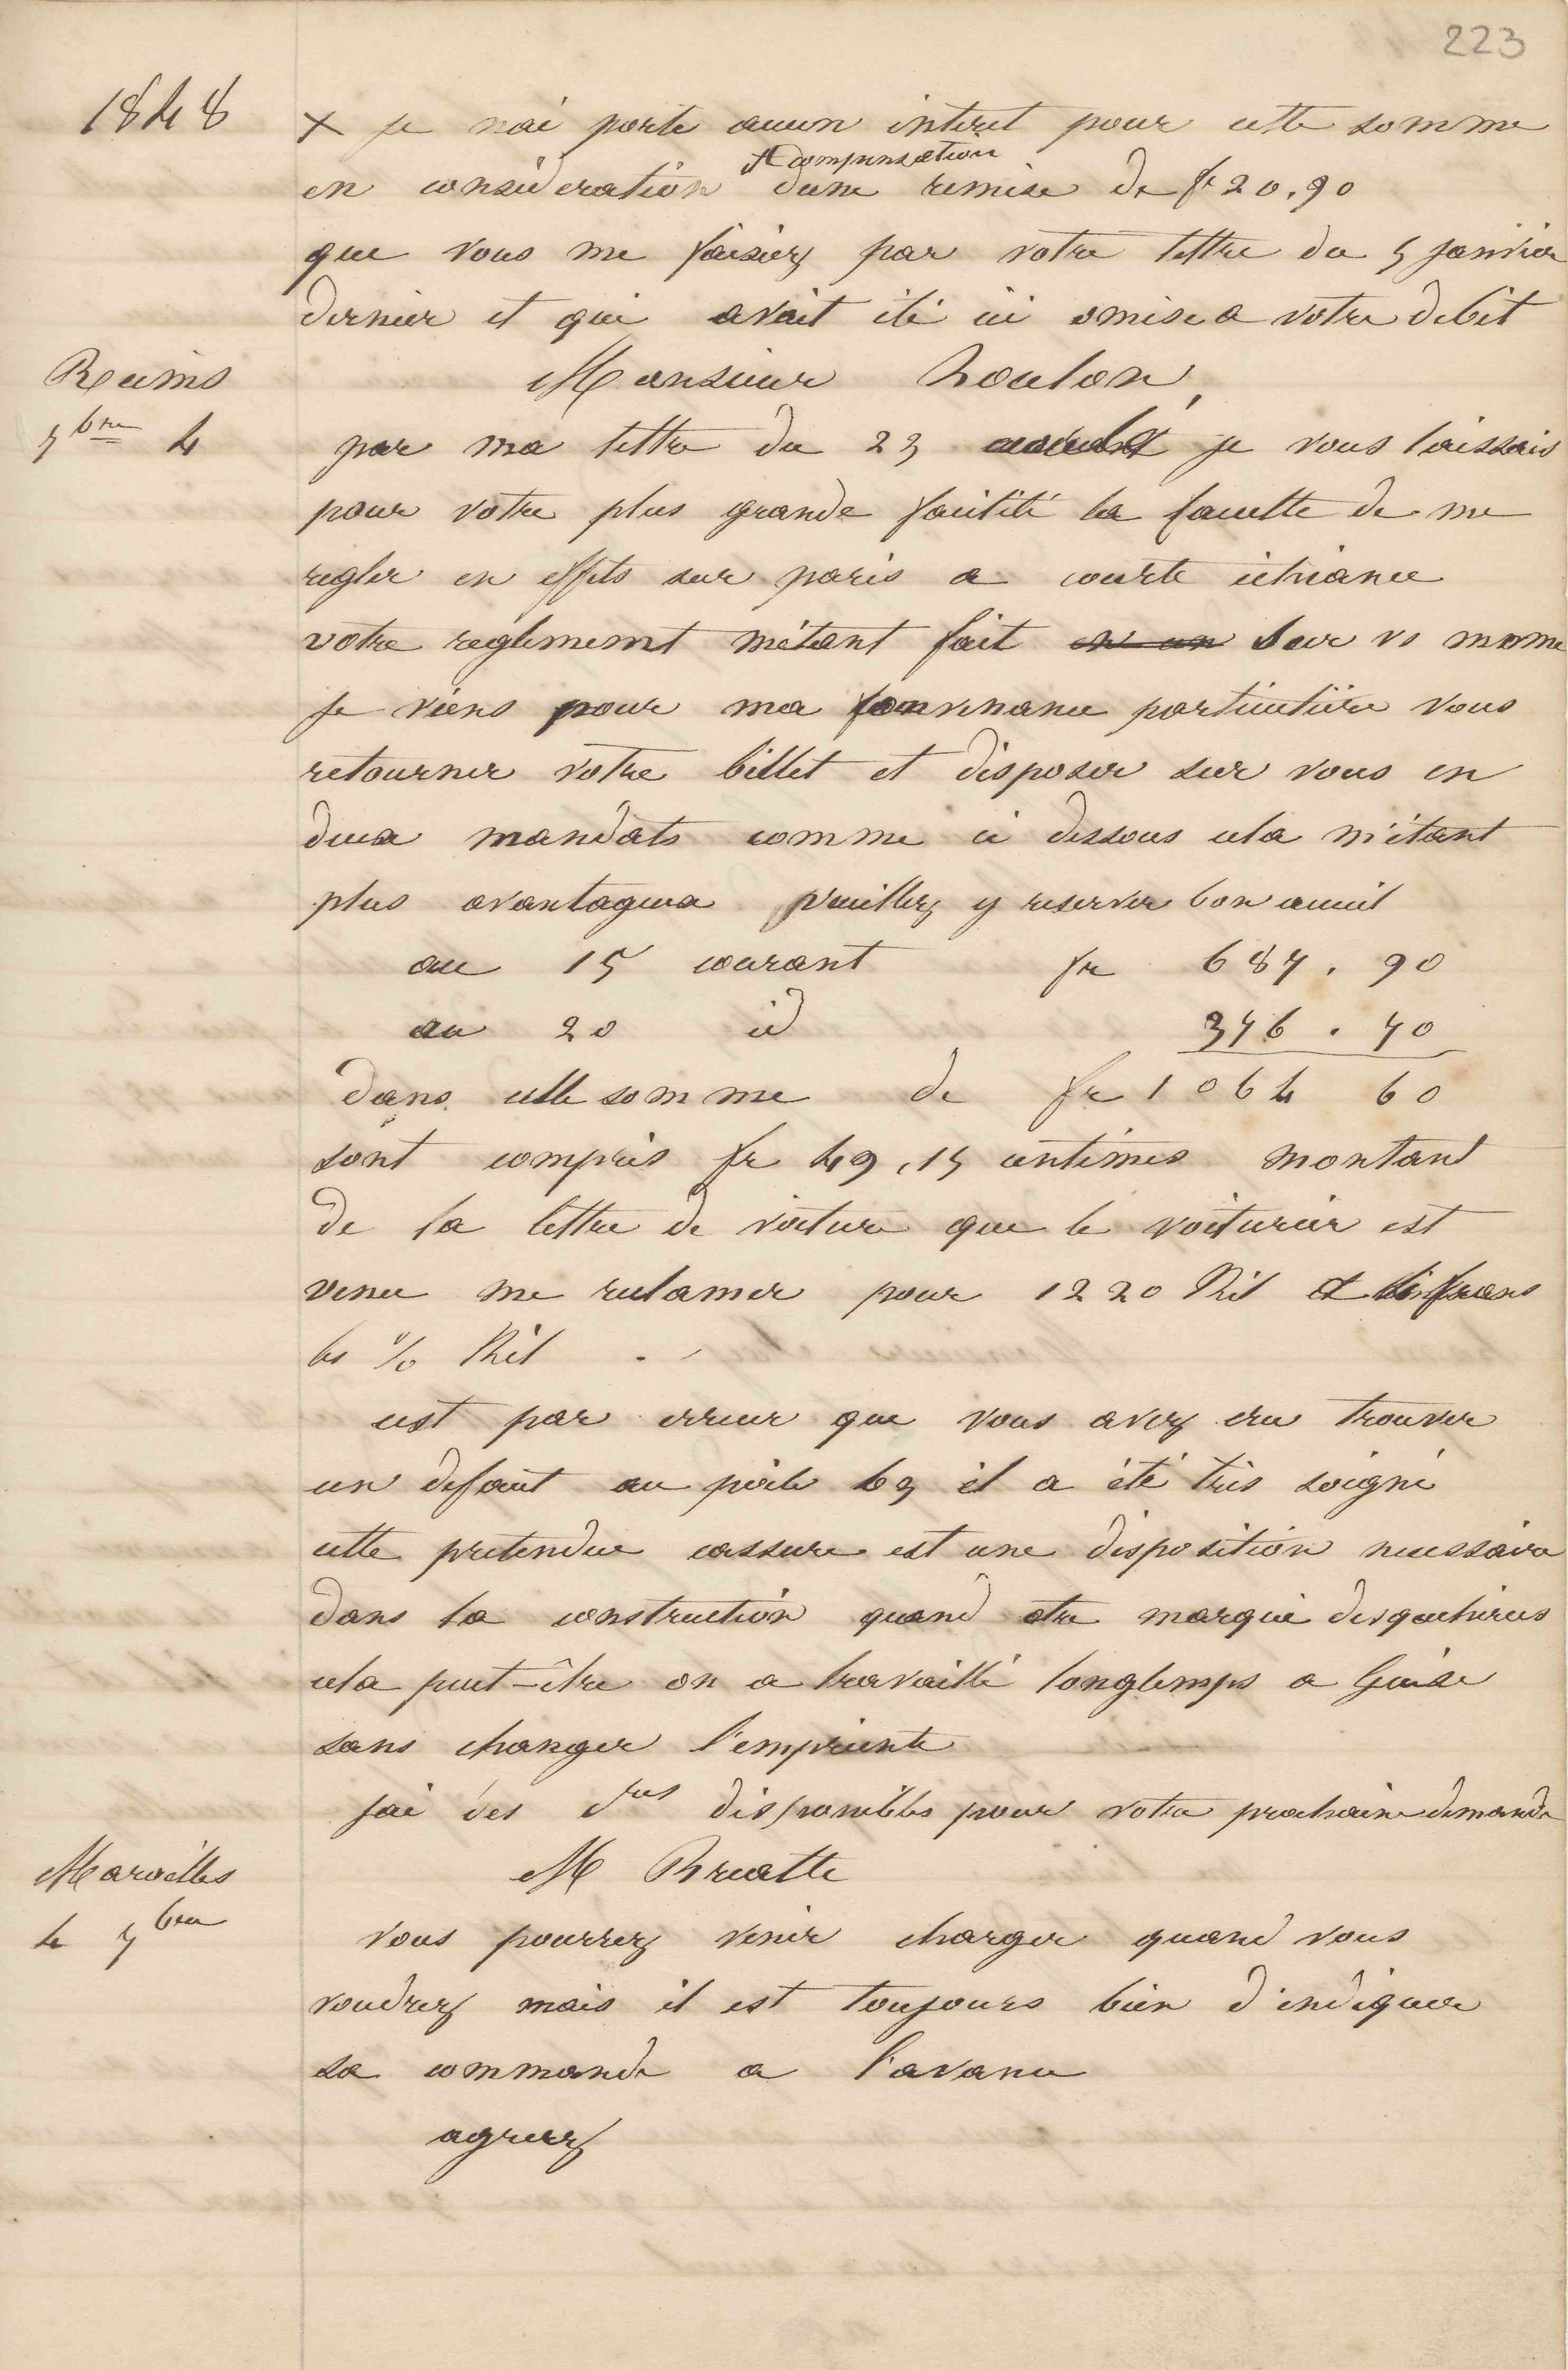 223
1848
x je nai porté aucun interet pour cette somme
x compensation
en consideration dune remise de fr 20.90
que vous me faisiez par votre lettre du 5 janvier
dernier et qui avait été ici omise a votre debit
Reims
7bre 4
Monsieur Houlon,
par ma lettre du 23 je vous laissais
pour votre plus grande facilité la faculté de me
regler en effets sur paris a courte échéance
votre reglement m'étant fait en un sur vs meme
Je viens pour ma convenance particulière vous
retourner votre billet et disposer sur vous en
deux mandats comme ci dessous cela m'étant
plus avantageux veuillez y reserver bon acceuil
au 15 courant fr 687.90
au 20 id 376.70
dans cette somme de fr 1064 60
sont compris fr 49,15 centimes montant
de la lettre de voiture que le voiturier est
venu me reclamer pour 1220 Kil et francs
les % Kil
cest par erreur que vous avez cru trouver
un defaut au poele 63 il a été très soigné
cette pretendue cassure est une disposition necessaire
dans la construction quand etre marqué desgachieres
cela peut-être on a travaillé longtemps a Guise
sans changer l'empreinte
jai des dres disponibles pour votre prochaine demande
Maroilles
4 7bre
M Bruatte
vous pourrez venir charger quand vous
voudrez mais il est toujours bien d'indiquer
sa commande a l'avance
agreez